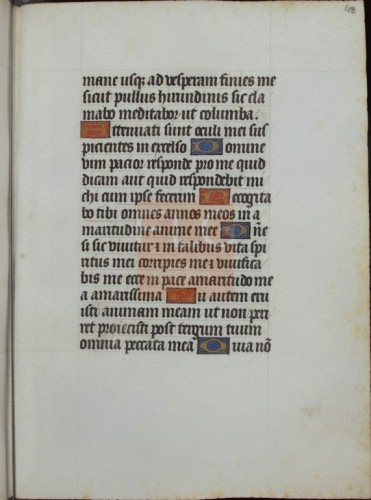 48
mane usq; ad vesperam finies me
sicut pullus hirundinis sic cla
mabo meditabor ut columba.
Attenuati sunt oculi mei sus
picientes in excelso Domine
vim pacior responde pro me quid
dicam aut quid respondebit mi
chi cum ipse fecerim Recogita
bo tibi omnes annos meos in a
maritudine anime mee Dñe
si sic vivitur ⁊ in talibus vita spi
ritus mei corripies me ⁊ vivifica
bis me ecce in pace amaritudo me
a amarissima Tu autem eru
isti animam meam ut non peri
ret proiecisti post tergum tuum
omnia peccata mea Quia nõ